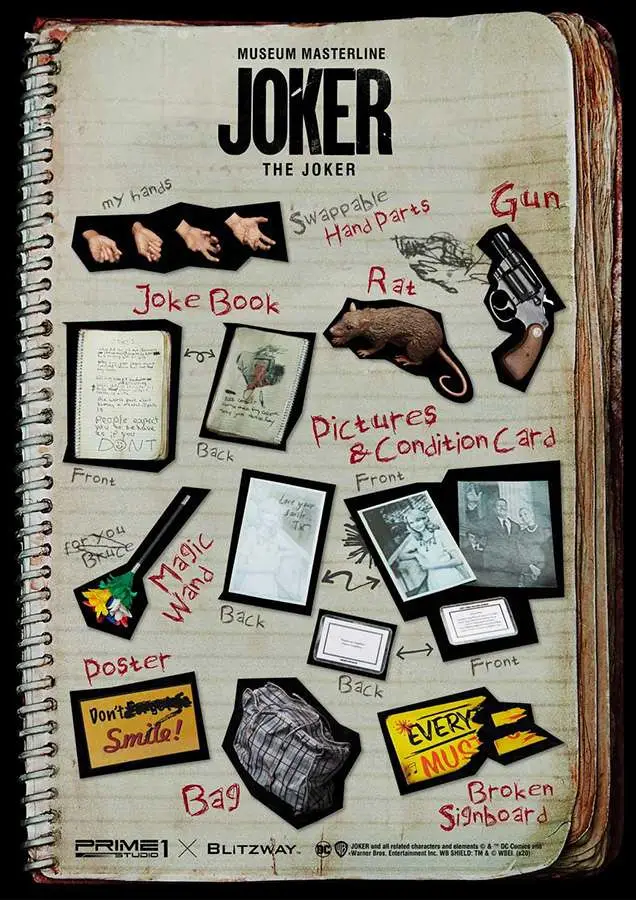 MUSEUM MASTERLINE
JOKER
THE JOKER
my hands
Swappable
Hand Parts
Gun
Joke Book
Rat
People expect
you to behave
as if you
DON'T
Front
Back
Pictures
& Condition Card
Front
for you
Bruce
Magic
Wand
Love your
smile
Back
Back
Front
Poster
Don't
Smile!
Bag
EVERY
MUS
Broken
Signboard
PRIME 1
STUDIO
X
BLITZWAY™
DC
WB
JOKER and all related characters and elements © & ™ DC Comics and
Warner Bros. Entertainment Inc. WB SHIELD: TM & © WBEI. (s20)